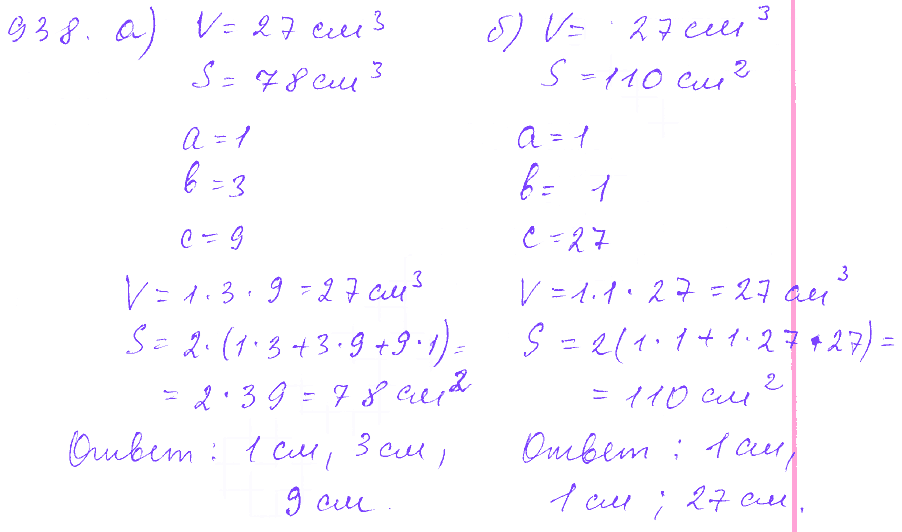 938. а) V = 27 см³
S = 78 см³
a = 1
b = 3
c = 9
V = 1 · 3 · 9 = 27 см³
S = 2 · (1 · 3 + 3 · 9 + 9 · 1) =
= 2 · 39 = 78 см²
Ответ : 1 см, 3 см,
9 см.
б) V = 27 см³
S = 110 см²
a = 1
b = 1
c = 27
V = 1 · 1 · 27 = 27 см³
S = 2 (1 · 1 + 1 · 27 + 27) =
= 110 см²
Ответ : 1 см,
1 см ; 27 см.